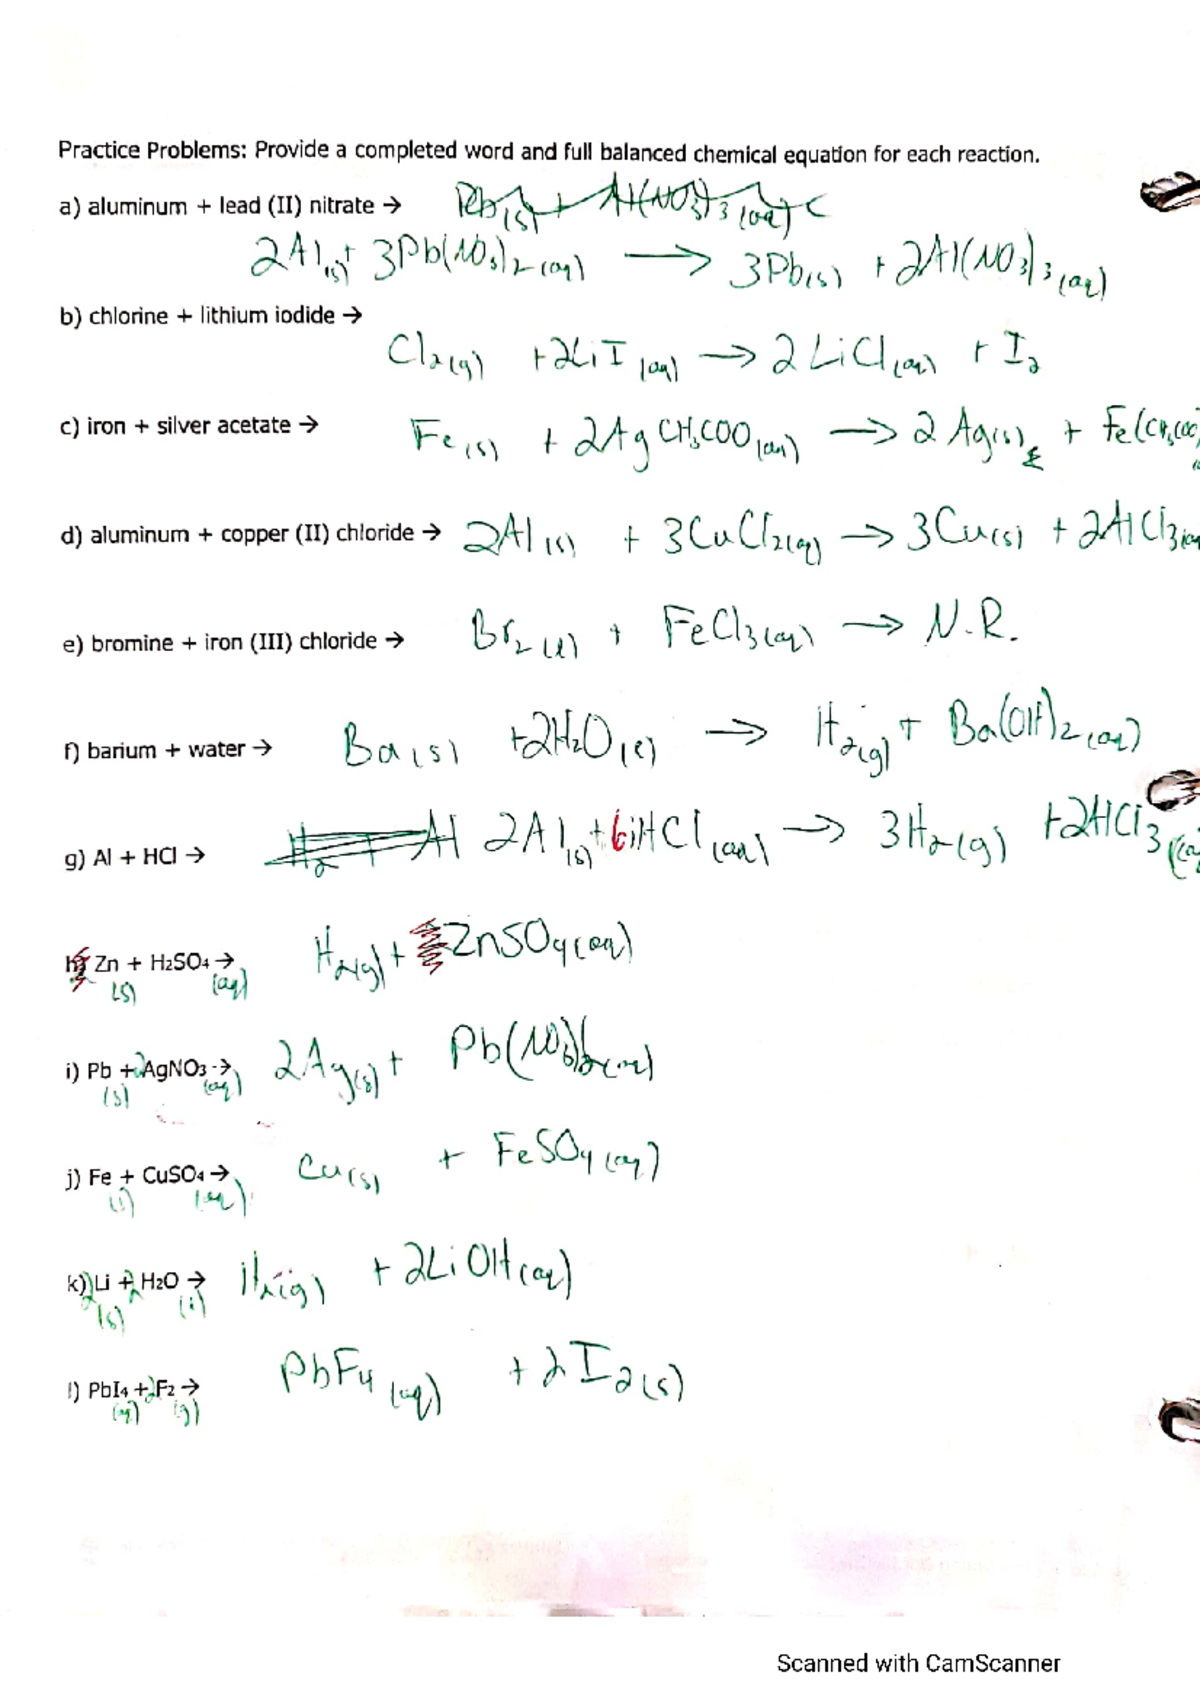 Practice Problems: Provide a completed word and full balanced chemical equation for each reaction.
a) aluminum + lead (II) nitrate →
2Al(s) + 3Pb(NO3)2(aq) → 3Pb(s) + 2Al(NO3)3(aq)
b) chlorine + lithium iodide →
Cl2(g) + 2LiI(aq) → 2LiCl(aq) + I2
c) iron + silver acetate → Fe(s) + 2AgCH3COO(aq) → 2Ag(s) + Fe(CH3COO)
d) aluminum + copper (II) chloride → 2Al(s) + 3CuCl2(aq) → 3Cu(s) + 2AlCl3(aq
e) bromine + iron (III) chloride → Br2(l) + FeCl3(aq) → N.R.
f) barium + water → Ba(s) + 2H2O(l) → H2(g) + Ba(OH)2(aq)
g) Al + HCl → 2Al(s) + 6HCl(aq) → 3H2(g) + 2AlCl3(aq
h) Zn(s) + H2SO4(aq) → H2(g) + ZnSO4(aq)
i) Pb(s) + 2AgNO3(aq) → 2Ag(s) + Pb(NO3)2(aq)
j) Fe(s) + CuSO4(aq) → Cu(s) + FeSO4(aq)
k) 2Li(s) + 2H2O(l) → H2(g) + 2LiOH(aq)
l) PbI4(aq) + 2F2(g) → PbF4(aq) + 2I2(s)
Scanned with CamScanner